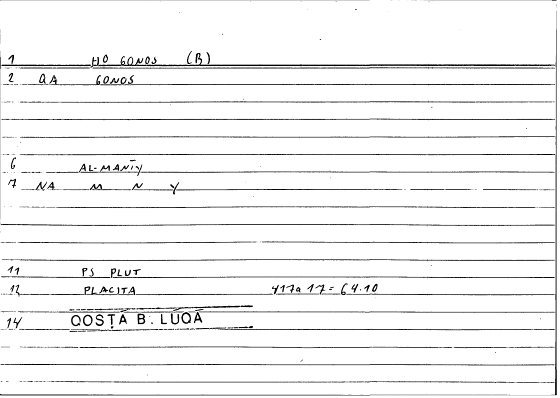 1 HO GONOS (B)
2 QA GONOS
6 AL-MANĪY
7 NA M N Y
11 PS PLUT
12 PLACITA 417a 17 = 64.10
14 QOSṬĀ B. LUQA